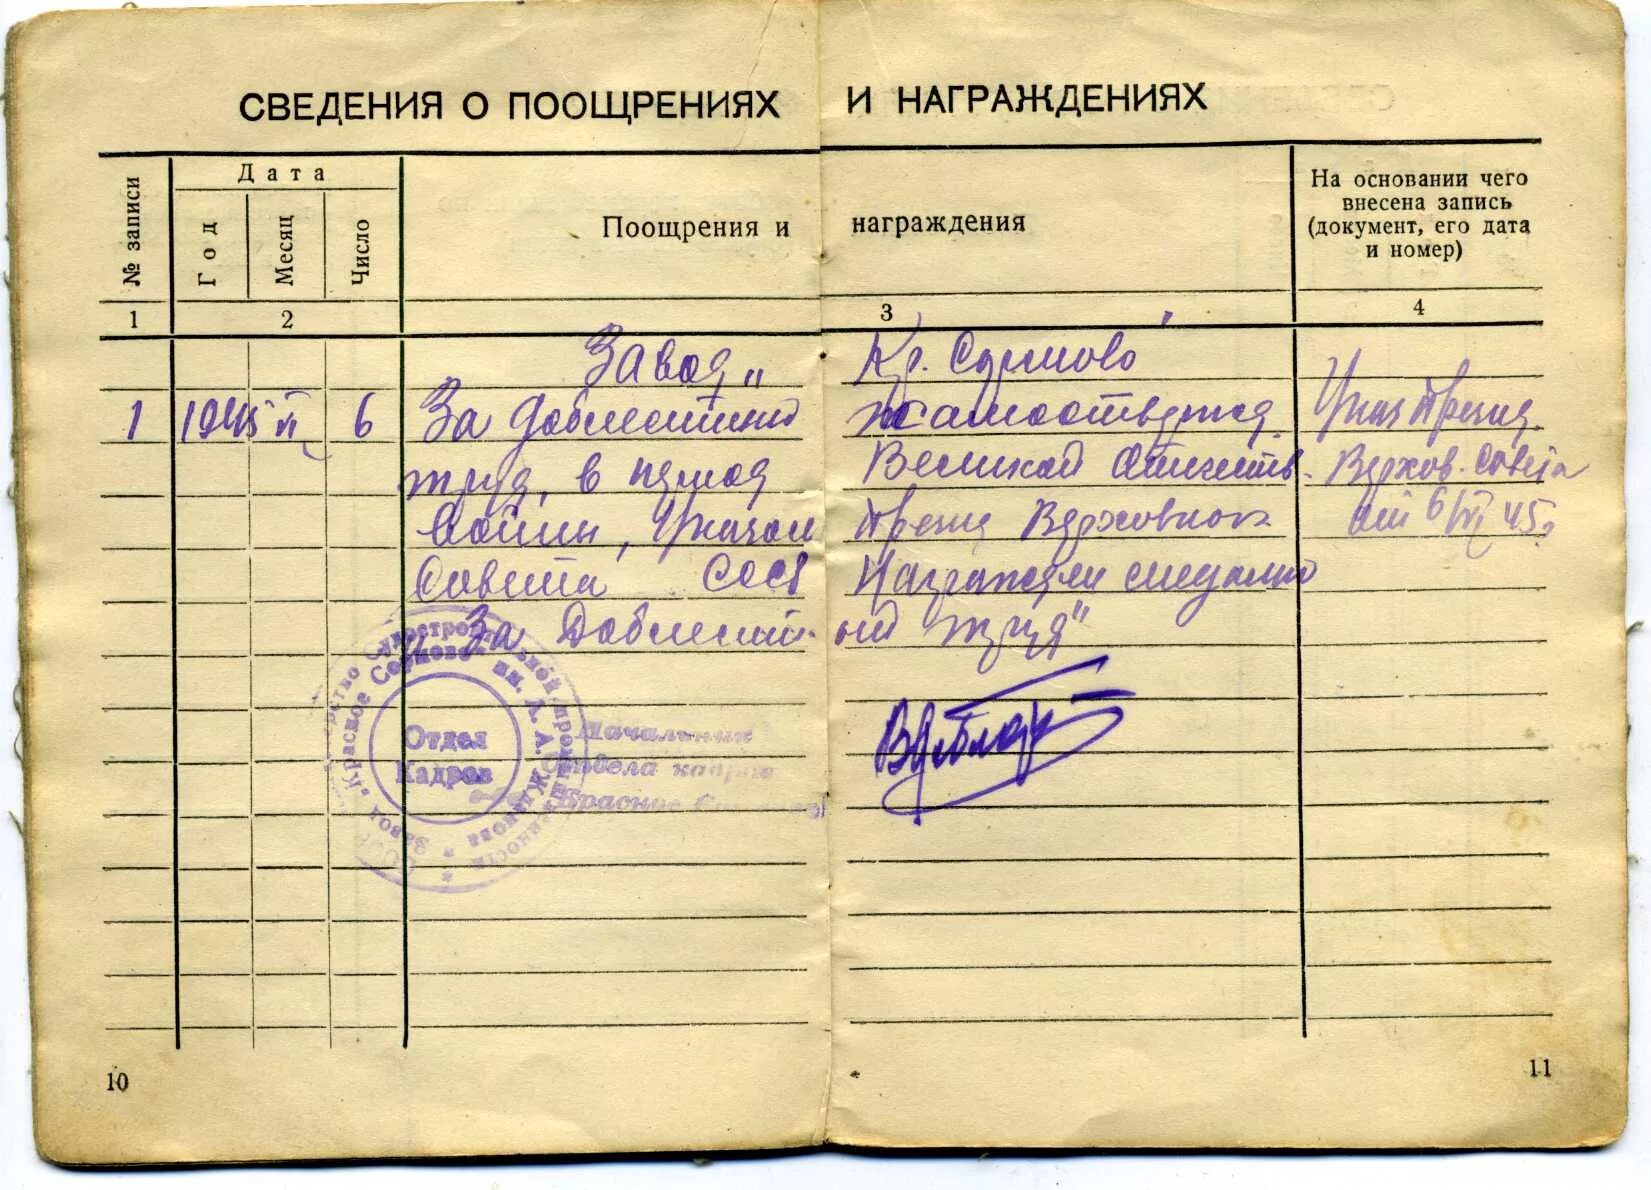 СВЕДЕНИЯ О ПООЩРЕНИЯХ И НАГРАЖДЕНИЯХ
№ записи
Дата
Год
Месяц
Число
Поощрения и награждения
На основании чего
внесена запись
(документ, его дата
и номер)
1 2 3 4
Завод „Кр. Сормово"
1 1945 6 За доблестный Указ Презид.
труд, в период Великой Отечеств. Верхов. Совета
Войны, Указом Презид Верховного от 6/VI 45г.
Совета СССР Награжден медалью
„За Доблестный труд"
Министерство Судостроительной промышленности СССР
Завод "Красное Сормово" им. А. А. Жданова
Отдел
Кадров
Начальник
Отдела кадров
Красное Сормово
10
11